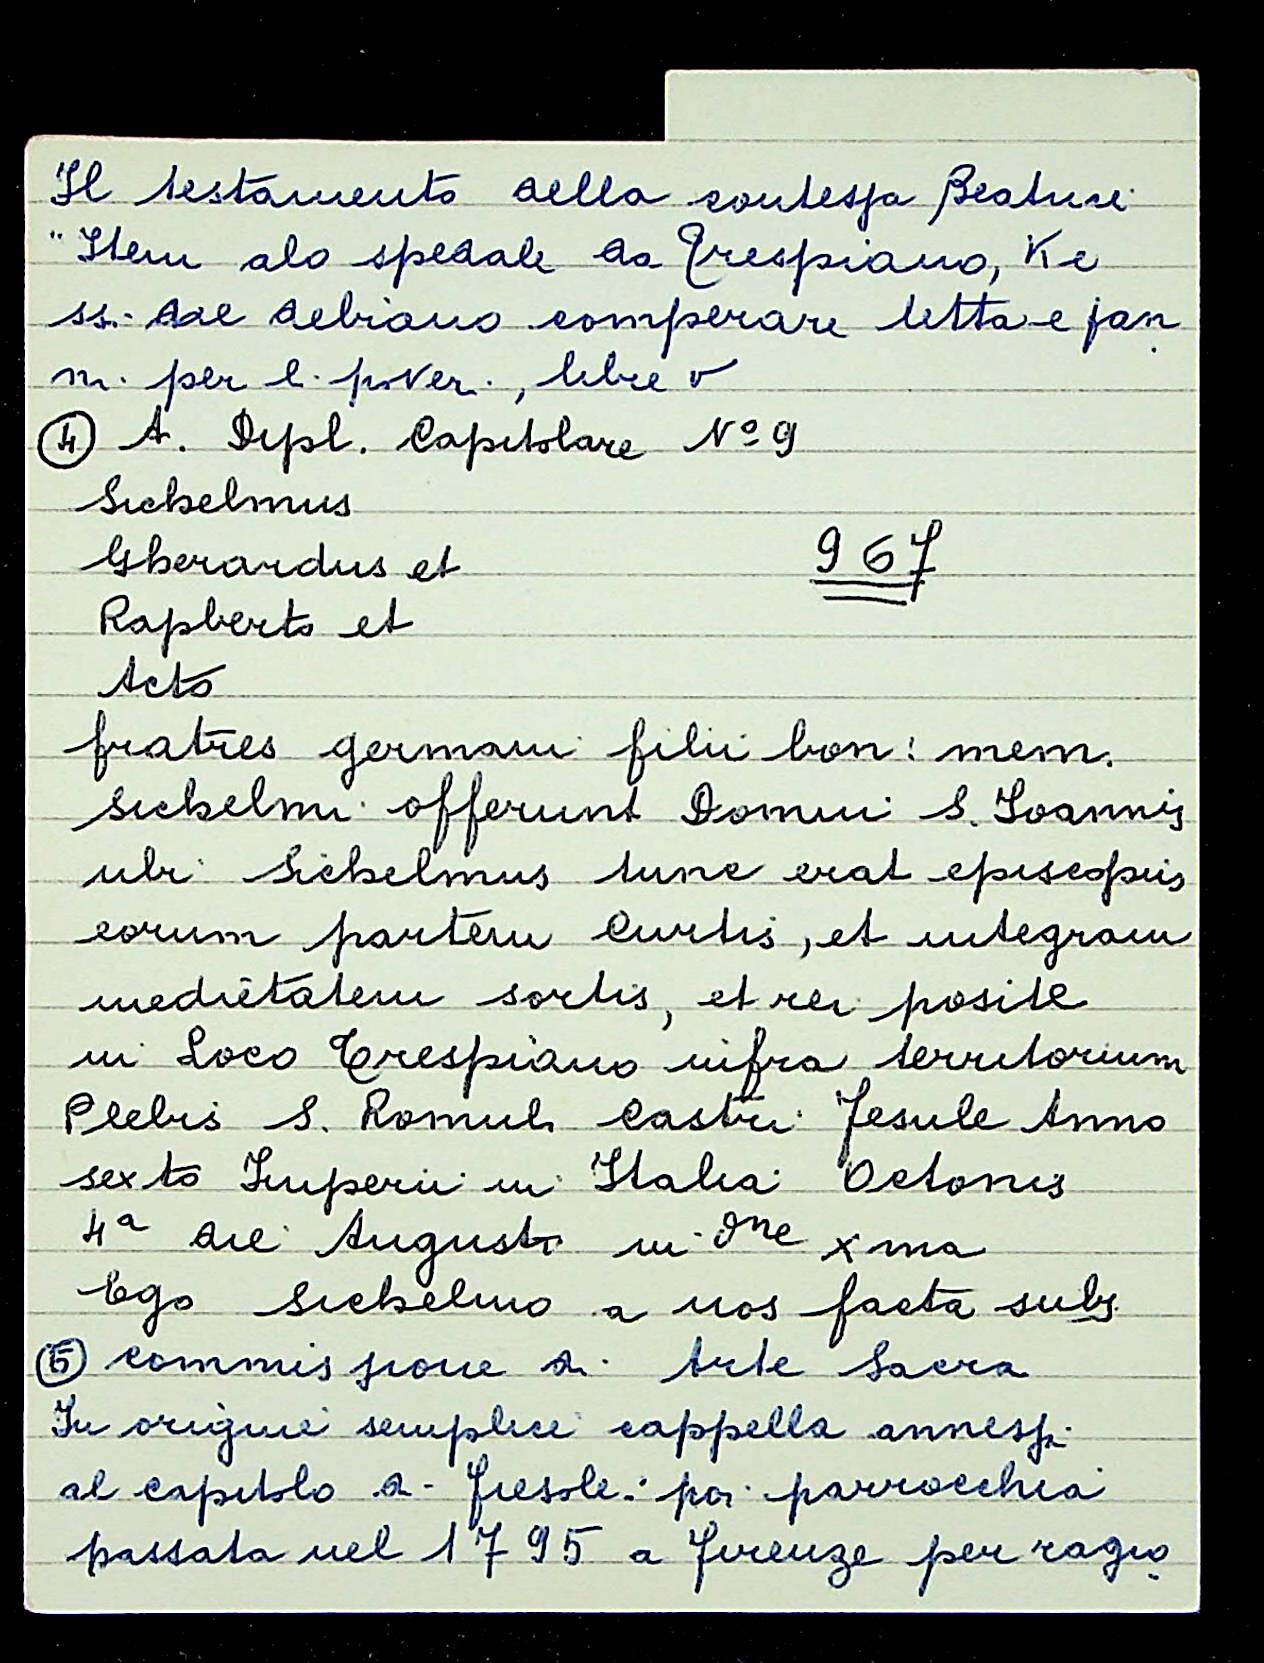 Il testamento della contessa Beatrice
"Item alo spedale da Trespiano, Ke
si. debiano comperare letta e pan
ni. per li. poveri., libre v
④ A. Dipl. Capitolare Nº 9
Sichelmus
Gherardus et
967
Rapberto et
Acto
fratres germani filii bon: mem.
Sichelmi offerunt Domui S. Ioannis
ubi Sichelmus tunc erat episcopus
eorum partem Curtis, et integram
medietatem sortis, et rei posite
in Loco Trespiano infra territorium
Plebis S. Romuli Castri Fesule Anno
sexto Imperii in Italia Octonis
4ª die Augusti in dne xma
Ego Sichelmo a nos facta subs
⑤ commissione di Arte Sacra
In origine semplice cappella annessa
al capitolo di Fiesole: poi parrocchia
passata nel 1795 a Firenze per ragio